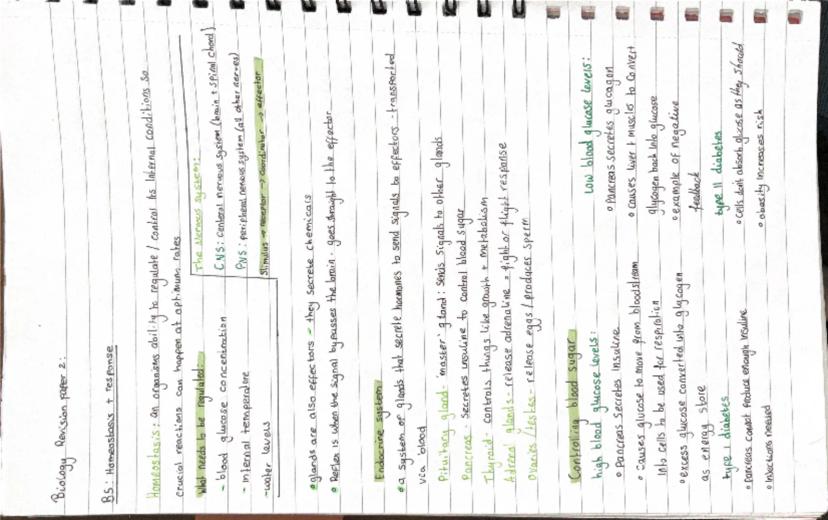 Biology Revision paper 2:
B5: Homeostasis + response
Homeostasis: an organisms ability to regulate / control its internal conditions so
crucial reactions can happen at optimum rates
What needs to be regulated:
- blood glucose concentration
- internal temperature
- water levels
The Nervous system:
CNS: central nervous system (brain + spinal chord)
PNS: peripheral nervous system (all other nerves)
Stimulus → receptor → coordinator → effector
• glands are also effectors - they secrete chemicals
• Reflex is when the signal bypasses the brain - goes straight to the effector
Endocrine system
• a system of glands that secrete hormones to send signals to effectors - transported
via blood
Pituitary gland - 'master' gland: sends signals to other glands
Pancreas - secretes insuline to control blood sugar
Thyroid - controls things like growth + metabolism
Adrenal glands - release adrenaline = fight or flight response
Ovaries / testes - release eggs / produces sperm
Controlling blood sugar
high blood glucose levels:
• Pancreas secretes insuline
• causes glucose to move from bloodstream
into cells to be used for respiration
• excess glucose converted into glycogen
as energy store
type 1 diabetes
• Pancreas cannot produce enough insuline
• injections needed
Low blood glucose levels:
• Pancreas secretes glucagon
• causes liver + muscles to convert
glycogen back into glucose
• example of negative
feedback
type 11 diabetes
• cells dont absorb glucose as they should
• obesity increases risk